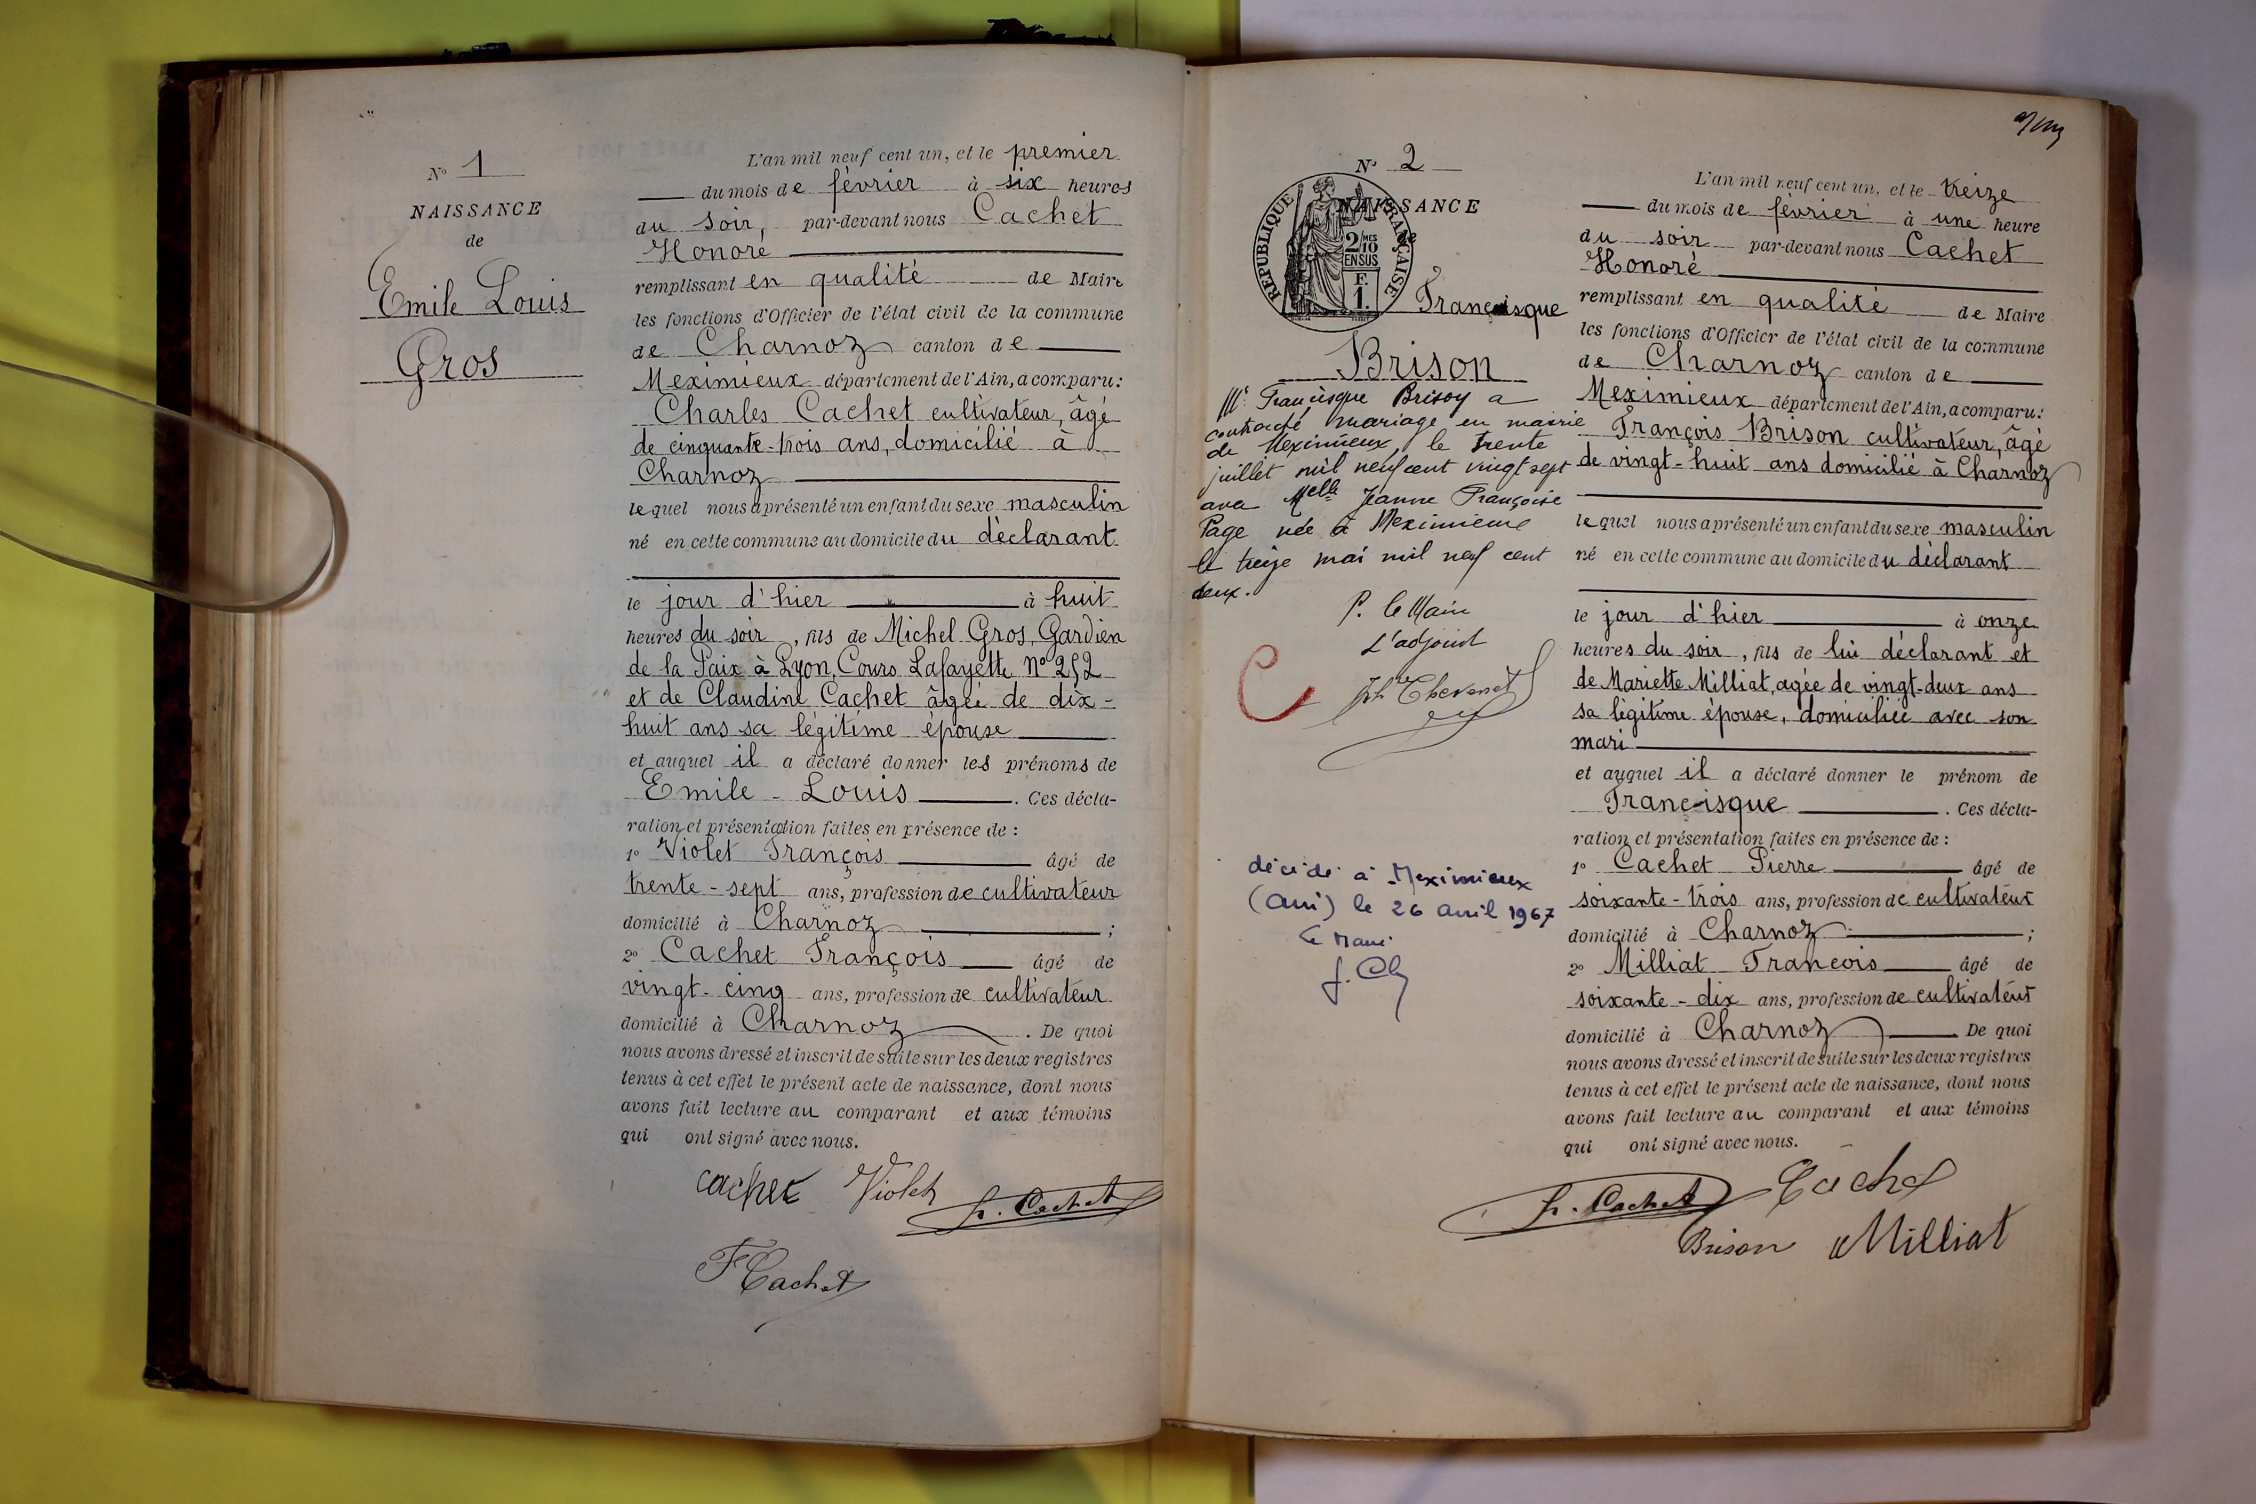 N° 1
NAISSANCE
de
Emile Louis
Gros
L'an mil neuf cent un, et le premier
du mois de février à six heures
du soir, par-devant nous Cachet
Honoré
remplissant en qualité de Maire
les fonctions d'Officier de l'état civil de la commune
de Charnoz canton de
Meximieux département de l'Ain, a comparu:
Charles Cachet cultivateur, âgé
de cinquante-trois ans, domicilié à
Charnoz
lequel nous a présenté un enfant du sexe masculin
né en cette commune au domicile du déclarant
le jour d'hier à huit
heures du soir, fils de Michel Gros, Gardien
de la Paix à Lyon, Cours Lafayette n° 252
et de Claudine Cachet âgée de dix-
huit ans sa légitime épouse
et auquel il a déclaré donner les prénoms de
Emile - Louis. Ces décla-
ration et présentation faites en présence de :
1° Violet François âgé de
trente-sept ans, profession de cultivateur
domicilié à Charnoz ;
2° Cachet François âgé de
vingt-cinq ans, profession de cultivateur
domicilié à Charnoz. De quoi
nous avons dressé et inscrit de suite sur les deux registres
tenus à cet effet le présent acte de naissance, dont nous
avons fait lecture au comparant et aux témoins
qui ont signé avec nous.
Cachet Violet h. Cachet
F Cachet
N° 2
NAISSANCE
de
RÉPUBLIQUE FRANÇAISE
2/MES
10
EN SUS
F.
1.
Francisque
Brison
Mr Francisque Brison a
contracté mariage en mairie
de Meximieux, le trente
juillet mil neuf cent vingt sept
avec Melle Jeanne Françoise
Page née à Meximieux
le treize mai mil neuf cent
deux.
P. le Maire
L'adjoint
Jh Thevenet
décédé à Meximieux
(Ain) le 26 avril 1967
Le Maire
L'an mil neuf cent un, et le treize
du mois de février à une heure
du soir par-devant nous Cachet
Honoré
remplissant en qualité de Maire
les fonctions d'Officier de l'état civil de la commune
de Charnoz canton de
Meximieux département de l'Ain, a comparu:
François Brison cultivateur, âgé
de vingt-huit ans domicilié à Charnoz
lequel nous a présenté un enfant du sexe masculin
né en cette commune au domicile du déclarant
le jour d'hier à onze
heures du soir, fils de lui déclarant et
de Mariette Milliat, agée de vingt-deux ans
sa légitime épouse, domiciliée avec son
mari
et auquel il a déclaré donner le prénom de
Francisque. Ces décla-
ration et présentation faites en présence de :
1° Cachet Pierre âgé de
soixante-trois ans, profession de cultivateur
domicilié à Charnoz ;
2° Milliat Francois âgé de
soixante-dix ans, profession de cultivateur
domicilié à Charnoz De quoi
nous avons dressé et inscrit de suite sur les deux registres
tenus à cet effet le présent acte de naissance, dont nous
avons fait lecture au comparant et aux témoins
qui ont signé avec nous.
h. Cachet Cachet
Brison Milliat